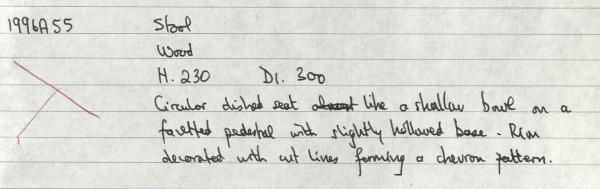 1996A55 Stool
Wood
H. 230 DI. 300
Circular dished seat almost like a shallow bowl on a
facetted pedestal with slightly hollowed base. Rim
decorated with cut lines forming a chevron pattern.